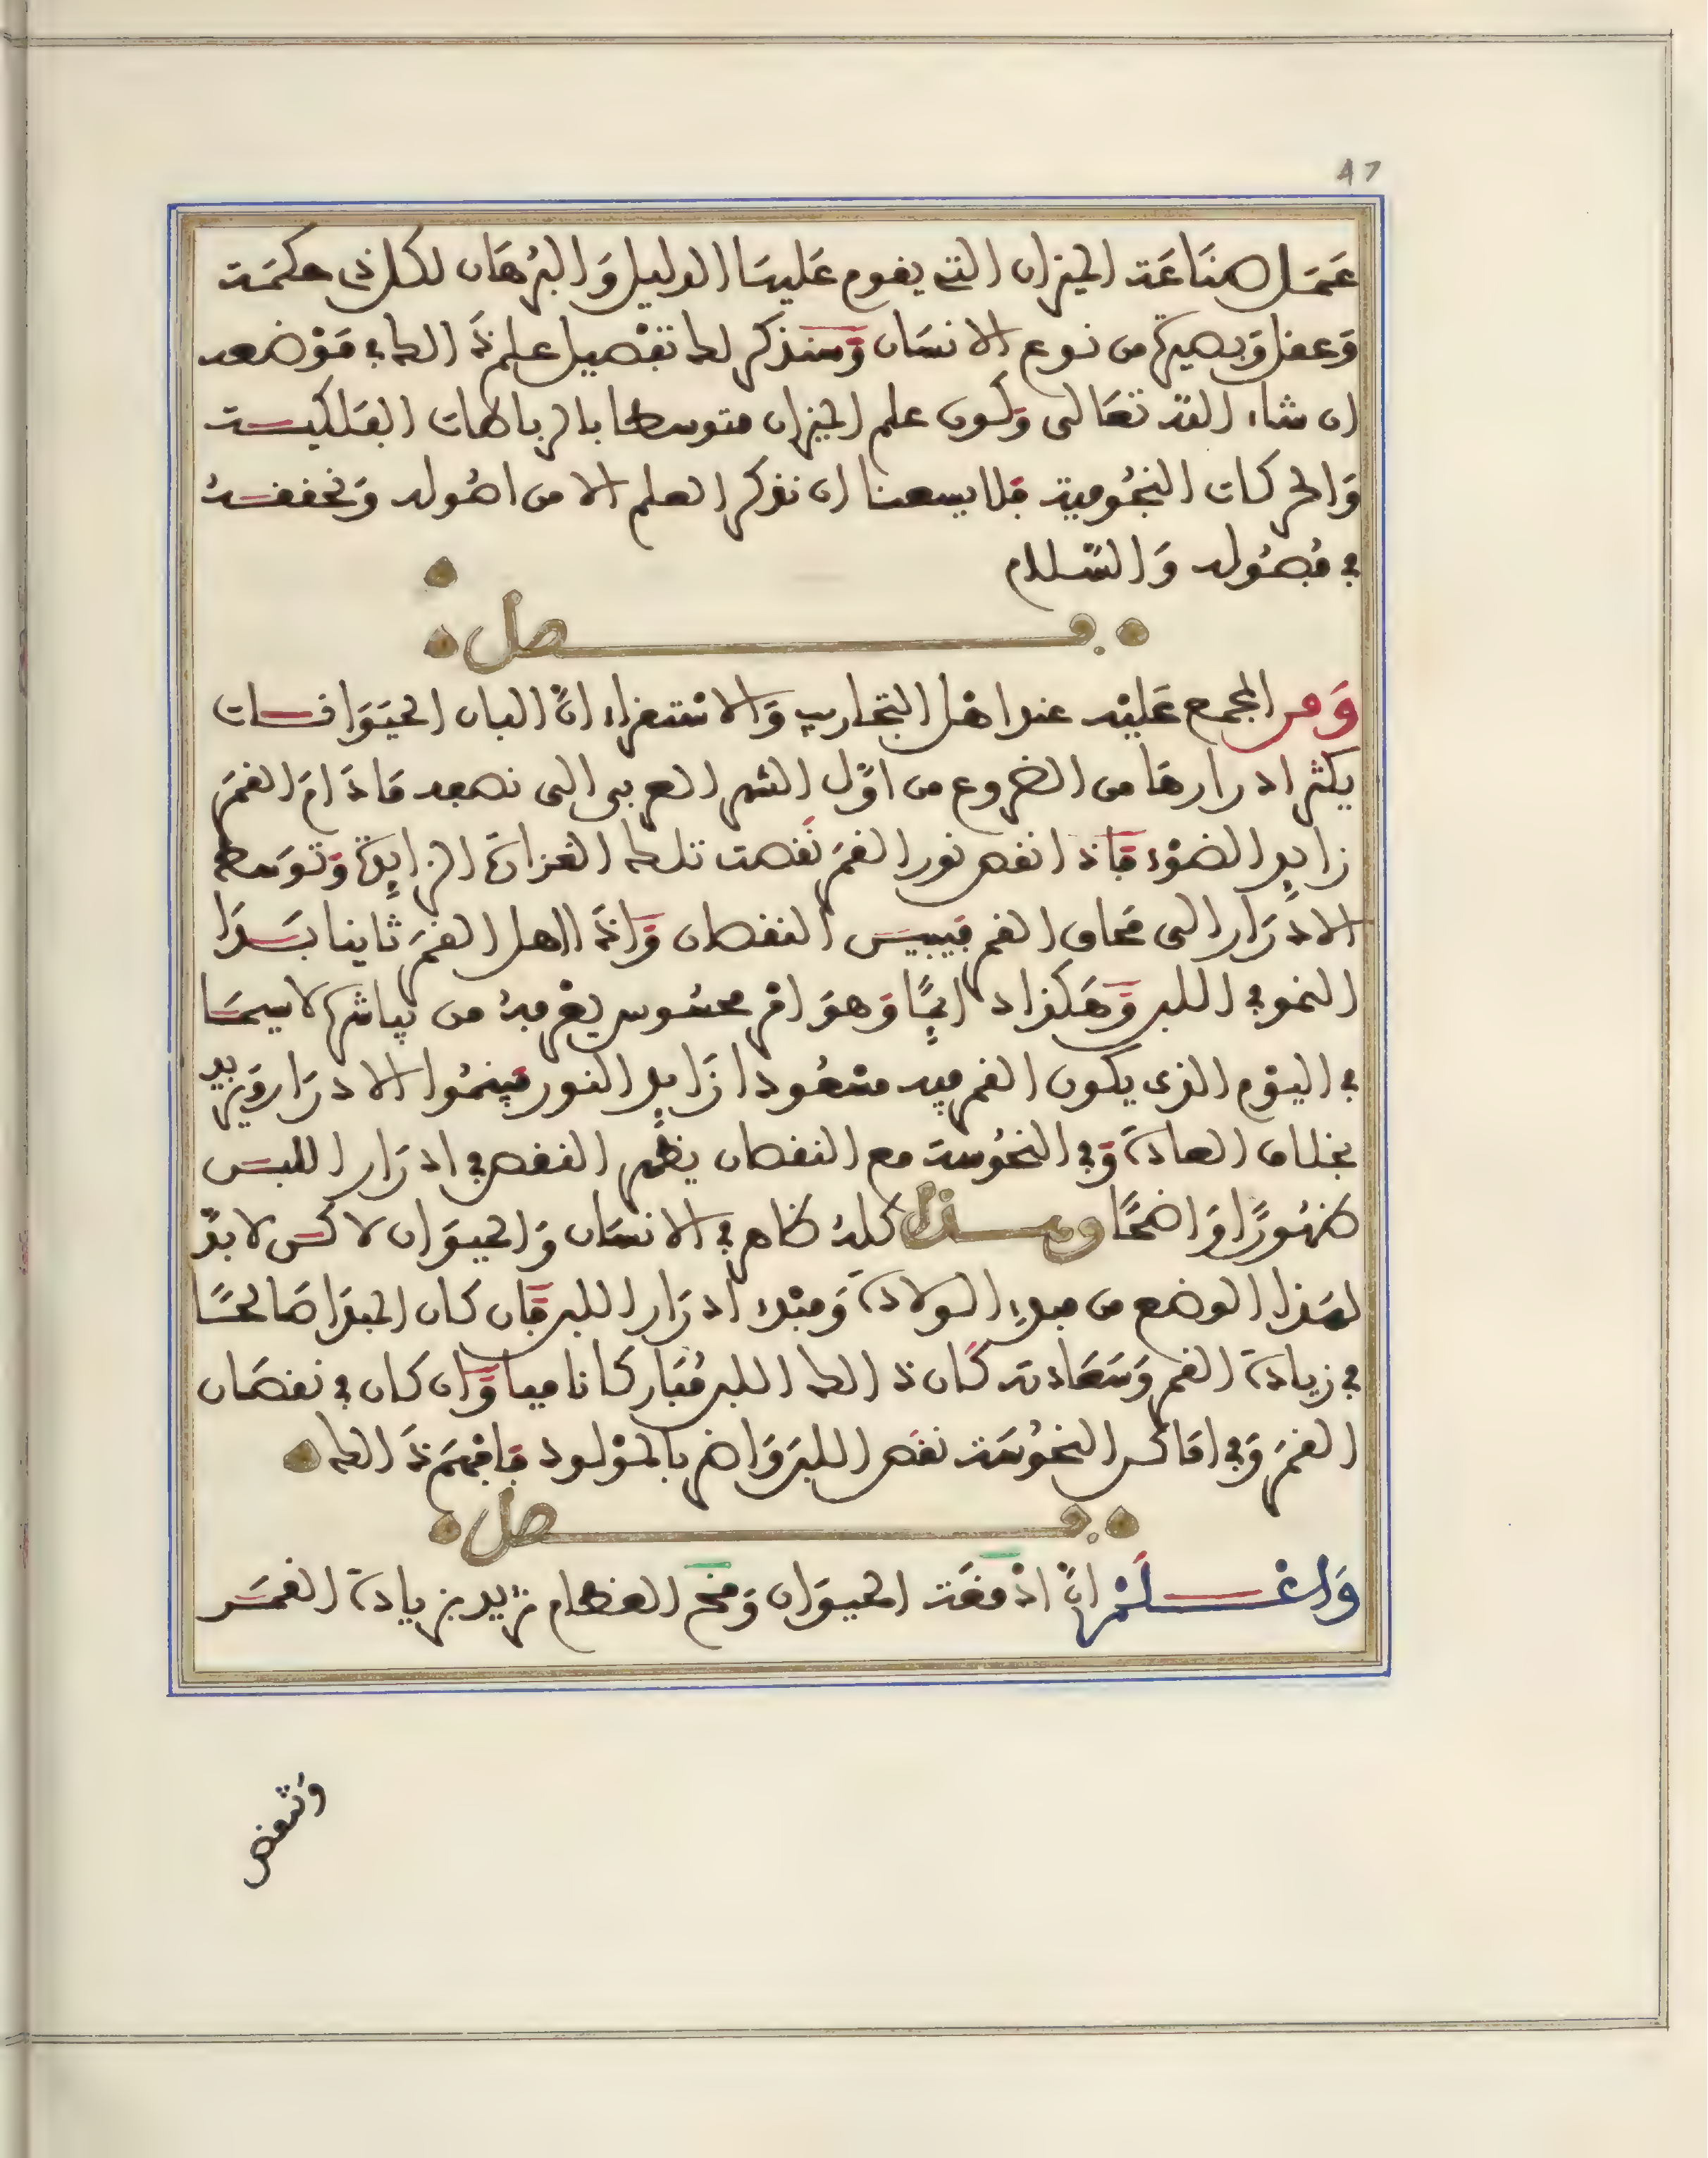 47
عَمَل صنَاعَة الميزان التي يقوم عَليهَا الدليل وَالبُرهَان لكل ذى حكمَة
وَعقل وَبصيرة من نوع الانسَان وَسنذكر لك تفْصيل علم ذَالك في مَوْضعه
ان شاء اللّه تعَالى وَلكون علم الميزان متوسطا بالرباطات الفَلكيـة
وَالحركات النجُومية فلا يسعنا ان نذكر العلم الا من اصُوله وَنحققـهُ
في فُصُوله وَالسّلام
فـصل
وَمن المجمع عَليْه عند اهْل التجارب وَالاسْتقراء انَّ البان الحيَوَانـات
يكثر ادرارها من الضروع من اوَّل الشهر العربى الى نصفه مَا دَامَ القمَر
زايِد الضوْء فَاذا نقص نور القمَر نَقصت تلك الغزارَة الزايِدَة وَتوسَط
الادْرَار الى مَحاق القمر فيَبيَـس النقصان وَاذَا اهل القمَر ثانيا بـَدَا
النمو في اللبن وَهَكذا دايِمًا وَهوَ امْر محسُوس يعْرفهُ من يباشره لا سيمَـا
في اليوْم الذى يكون القمر فيه مسْعُودا زَايِد النور فينمُوا الادرَار وَيزيد
بخلاف العادَة وَفي النحُوسَة مع النقصان يظهر النقص في ادرَار اللبـن
ظهُورًا وَاضحًا وهـذا كلهُ ظاهر في الانسَان وَالحيوَان لاكـن لا بدّ
لهَذا الوضع من مبدإِ الولادَة وَمبْدء ادرَار اللبن فَان كان المبدَا صَالحًـا
في زيادَة القمر وَسَعَادته كَان ذَالك اللبن مُبَاركا ناميا وَان كان في نقصَان
القمَر وَفي امَاكن النحُوسَة نقصَ اللبَن وَاضر بالموْلود فَافْهَم ذَالك
فـصل
وَاعْـلَمْ انَّ ادْمغَة الحيوَان وَمخ العظام تزيد بزيادَة القمَـر
وَتنقص